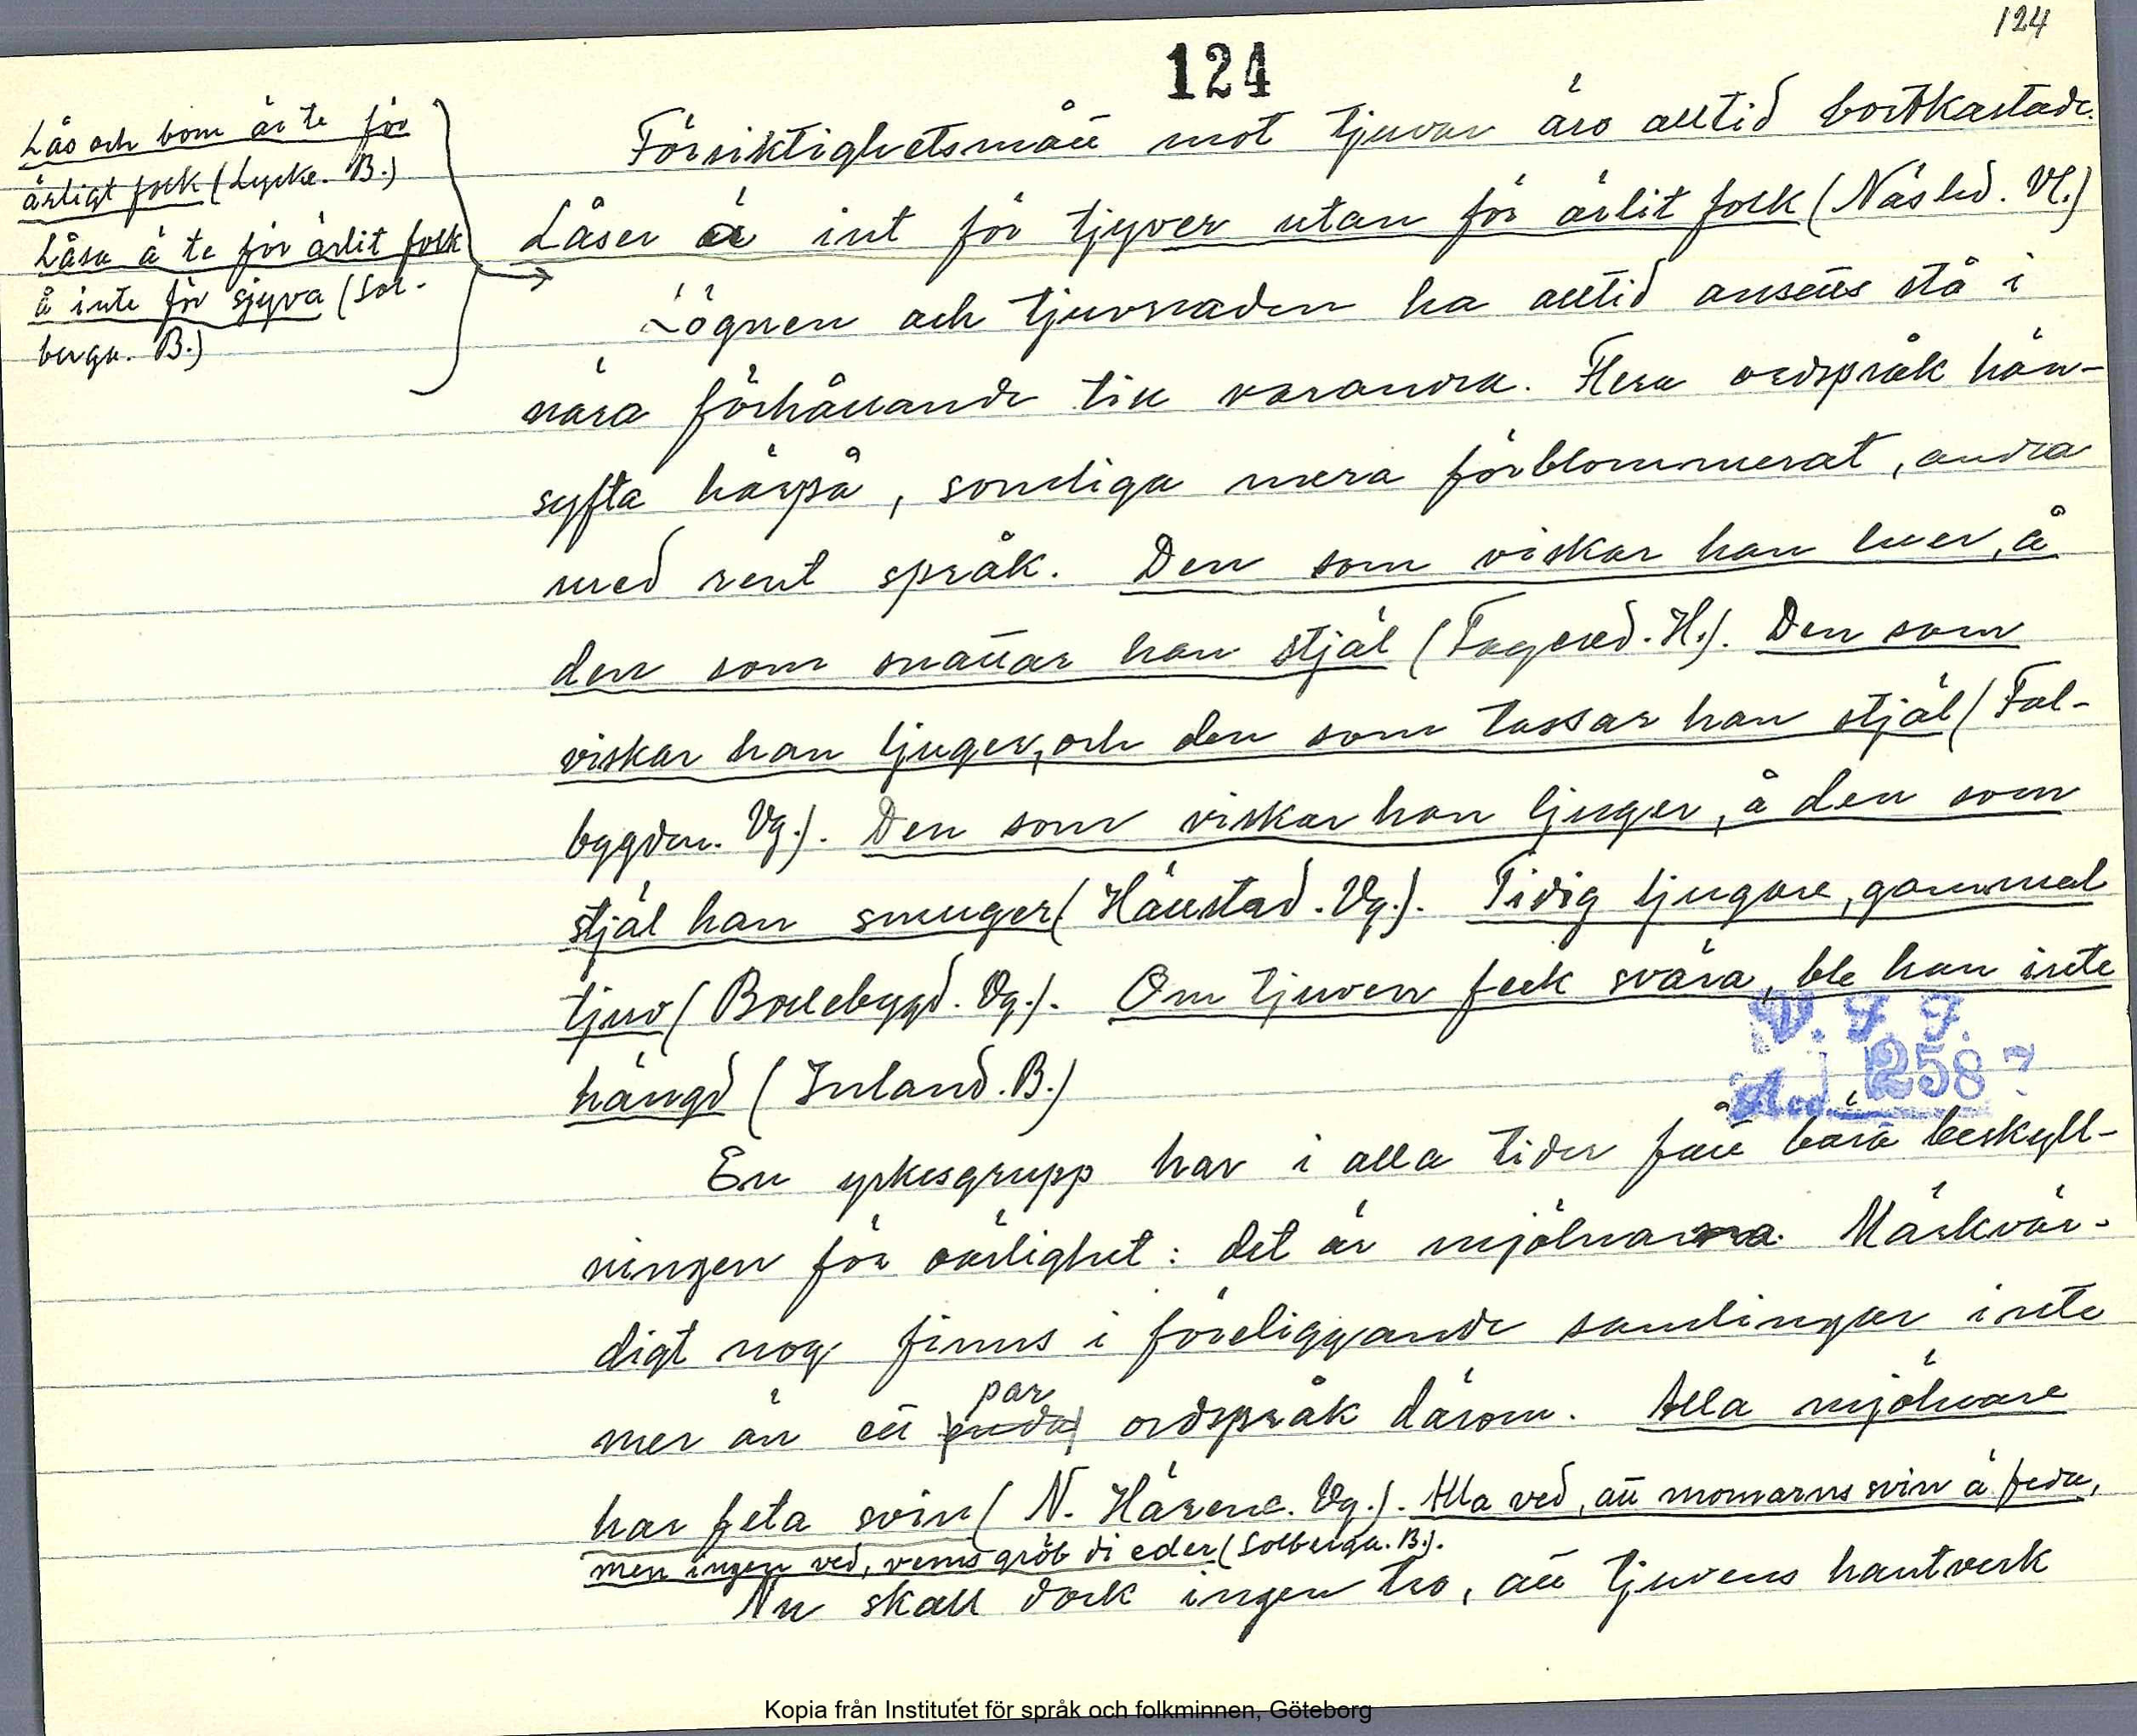 124
124
Lås och bom är te för
ärligt folk (Lycke. B.)
Låsa ä te för ärlit folk
å inte för sjyva (Sol-
berga. B.)
Försiktighetsmått mot tjuvar äro alltid bortkastade.
Låser ä int för tjyver utan för ärlit folk (Näsled. Vl.)
Lögnen och tjuvnaden ha alltid ansetts stå i
nära förhållande till varandra. Flera ordspråk hän-
syfta härpå, somliga mera förblommerat, andra
med rent språk. Den som viskar han luer, å
den som snattar han stjäl (Fagered. H.). Den som
viskar han ljuger, och den som tassar han stjäl (Fal-
bygden. Vg.). Den som viskar han ljuger, å den som
stjäl han smuger (Hällstad. Vg.). Tidig ljugare, gammal
tjuv (Bollebygd. Vg.). Om tjuven feck svära, ble han inte
hängd (Inland. B.)
V. F. F.
Acc. 258?
En yrkesgrupp har i alla tider fått bära beskyll-
ningen för oärlighet: det är mjölnarna. Märkvär-
digt nog finns i föreliggande samlingar inte
mer än ett par ordspråk därom. Alla mjölnare
har feta svin (N. Härene. Vg.). Alla ved, att monnarns svin ä feda,
men ingen ved, vems gröb di eder (Solberga. B.).
Nu skall dock ingen tro, att tjuvens hantverk
Kopia från Institutet för språk och folkminnen, Göteborg